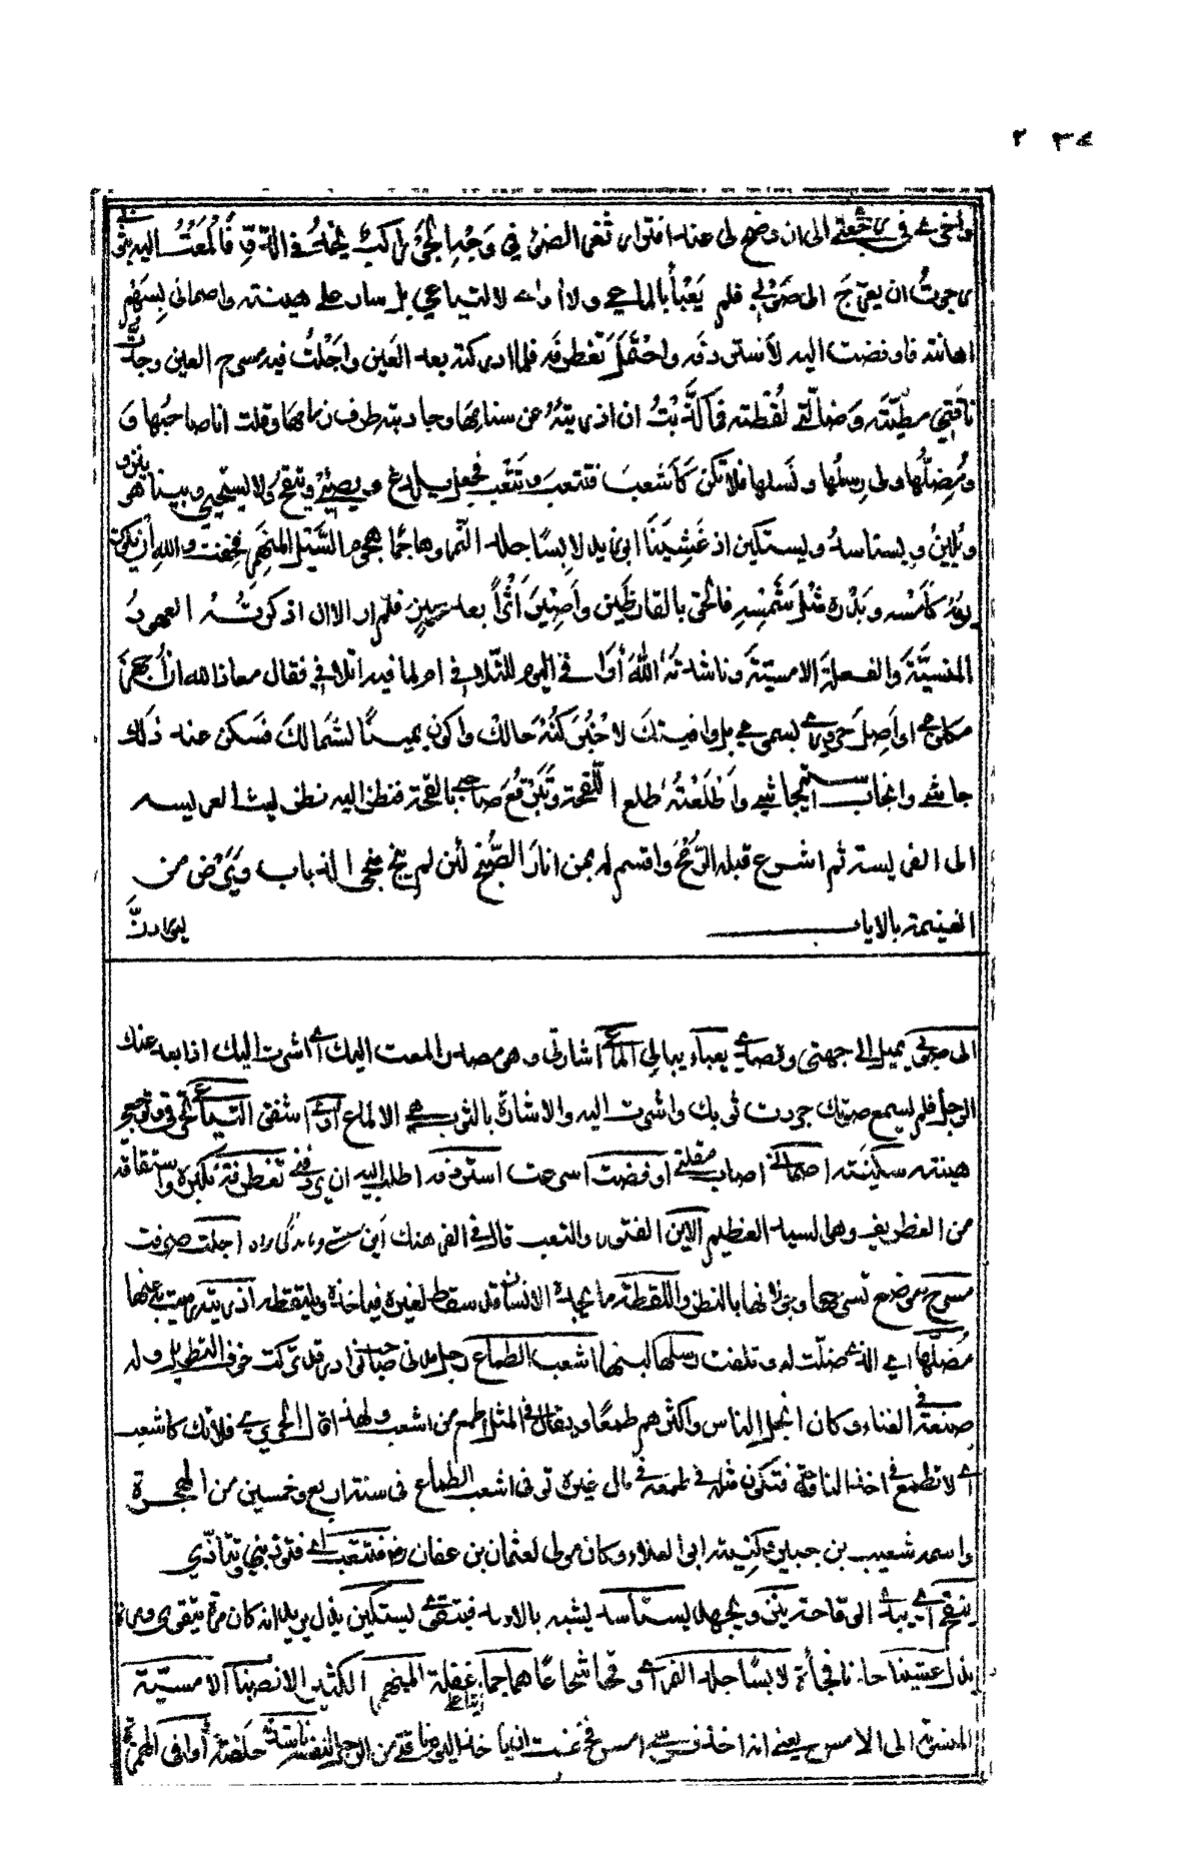 ٢٣٤
واخرى في رجعتي الى ان وضح لي عند افترار ثغر الضوء في وجه الجو راكب يخد في الدو فالمعت اليه بثوبي
ورجوت ان يعرج الى صوبي فلم يعبأ بالماعي ولا أوى لالتياعي بل سار على هينته واصماني بسهم
اهانته فاوفضت اليه لأستردفه واحتمل تغطرفه فلما ادركته بعد الأين واجلت فيه مسرح العين وجدت
ناقتي مطيته وضالتي لقطته فما كذبت ان اذريته عن سنامها وجاذبته طرف زمامها وقلت انا صاحبها و
ومضلها ولي رسلها ونسلها فلا تكن كأشعب فتتعب وتتعب فجعل يلدغ ويصئي ويتقح ولا يستحيي وبينا هو ينزو
ويلين ويستاسد ويستكين اذ غشينا ابو زيد لابسا جلد النمر وهاجما هجوم السيل المنهمر فخفت والله ان يكون
يومه كأمسه وبدره مثل شمسه فالحق بالقارظين واصير اثرا بعد عين فلم ار الا ان اذكرته العهود
المنسية والفعلة الامسية وناشدته الله أوافى اليوم للتلافي ام لما فيه اتلافي فقال معاذ الله ان أجهز
مكلومي او اصل حروري بسمومي بل وافيتك لاخبر كنه حالك واكون يمينا لشمالك فسكن عند ذلك
جاشي وانجاب استيحاشي واطلعته طلع اللقحة وتبرقع صاحبي بالقحة فنظر اليه نظر ليث العريسة
الى الفريسة ثم اشرع قبله الرمح واقسم له بمن انار الصبح لئن لم ينج منجى الذباب ويرض من
الغنيمة بالاياب ليوردن
الى صوبي يميل الى جهتي وقصدي يعبأ يبالي الماعي اشارتي وهي مصدر المعت اليك اي اشرت اليك اذا بعد عنك
الرجل فلم يسمع صوتك جردت ثوبك واشرت اليه والاشارة بالثوب هي الالماع أوى اشفق التياعي تحرقي وتوجعي
هينته سكينته اصماني اصاب مقلتي اوفضت اسرعت استردفه اطلب اليه ان يردفني تغطرفه تكبره واشتقاقه
من الغطريف وهو السيد العظيم الأين الفتور والتعب قال في الفرهنك أين سستى وماندگى راه اجلت صرفت
مسرح موضع تسريحها وجولانها بالنظر واللقطة ما يجده الانسان قد سقط لغيره فياخذه ويلتقطه اذريته رميت به عنها
مضلها اي الذي ضلت له وتلفت رسلها لبنها اشعب الطماع رجل مدني صاحب نوادر قد تركت خوف التطويل وله
صنعة في الغناء وكان ابخل الناس واكثرهم طمعا ويقال في المثل اطمع من اشعب ولهذا قال الحريري فلا تك كاشعب
اي لا تطمع في اخذ الناقة فتكون مثله في طمعه في مال غيره توفى اشعب الطماع في سنة اربع وخمسين من الهجرة
واسمه شعيب بن جبير وكنيته ابو العلاء وكان مولى لعثمان بن عفان رض فتتعب اي فتؤذيني وتتأذي
يتقح اي يبدي الى قاحة ينزو ويجهل يستأسد يشبه بالاسد فيتقوى يستكين يذل يريد انه كان مرة يتقوى ومرة
يذل غشينا جاءنا فجأة لابسا جلد النمر اي وقحا شجاعا هاجما غفلة المنهمر الكثير الانصباب الامسية
المنسوبة الى الامس يعني انه اخذ فرسي امس فخفت ان ياخذ اليوم ناقتي من الرجل لنفسه ناشدته حلفته أوافى الهمزة